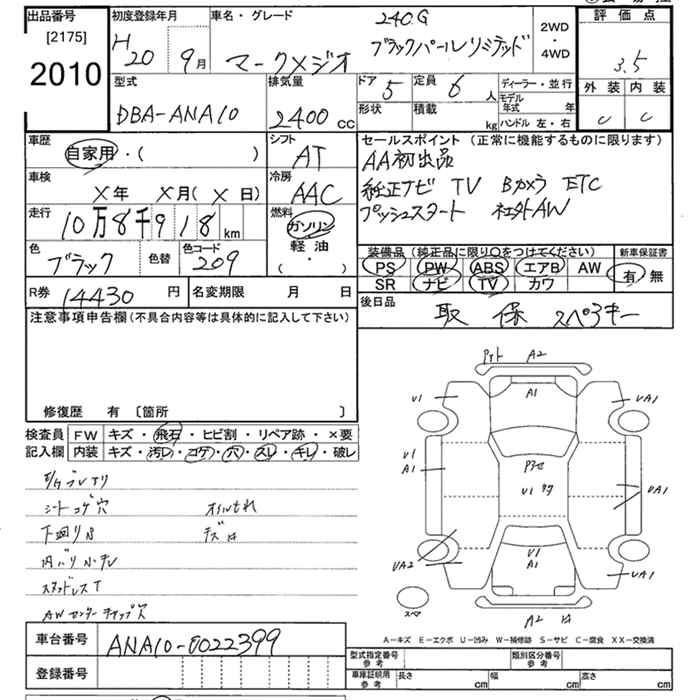 出品番号
[2175]
2010
初度登録年月
H20 9月
車名・グレード
240G
マークXジオ ブラックパールリミテッド
2WD
・
4WD
評価点
3.5
外装 内装
C C
型式
DBA-ANA10
排気量
2400 CC
ドア 5 定員 6 人
形状 積載 kg
ディーラー・並行
モデル年式 年
ハンドル 左・右
車歴
自家用・( )
シフト
AT
車検
X年 X月(X日)
冷房
AAC
走行
10万8千918km
燃料
ガソリン
軽油
( ・ )
色
ブラック
色替
色コード
209
セールスポイント (正常に機能するものに限ります)
AA初出品
純正ナビ TV Bカメラ ETC
プッシュスタート 社外AW
装備品(純正品に限り○をつけてください)
PS PW ABS エアB AW
SR ナビ TV カワ
新車保証書
有・無
R券 14430円
名変期限 月 日
後日品
取 保 スペアキー
注意事項申告欄(不具合内容等は具体的に記入して下さい)
修復歴 有 〔箇所 〕
検査員記入欄
FW キズ・飛石・ヒビ割・リペア跡・×要
内装 キズ・汚レ・コゲ・穴・スレ・キレ・破レ
シートコゲ穴 オイルもれ
下回りS
スタッドレスT
AWセンターキャップ欠
A2
A1
U1
UA1
U1
A1
U1
UA1
UA2
U1
A1
UA1
A2
スペア
A－キズ E－エクボ U－凹み W－補修跡 S－サビ C－腐食 XX－交換済
車台番号
ANA10-0022399
登録番号
型式指定番号
参考
類別区分番号
参考
車庫証明用
参考
長さ cm 幅 cm 高さ cm